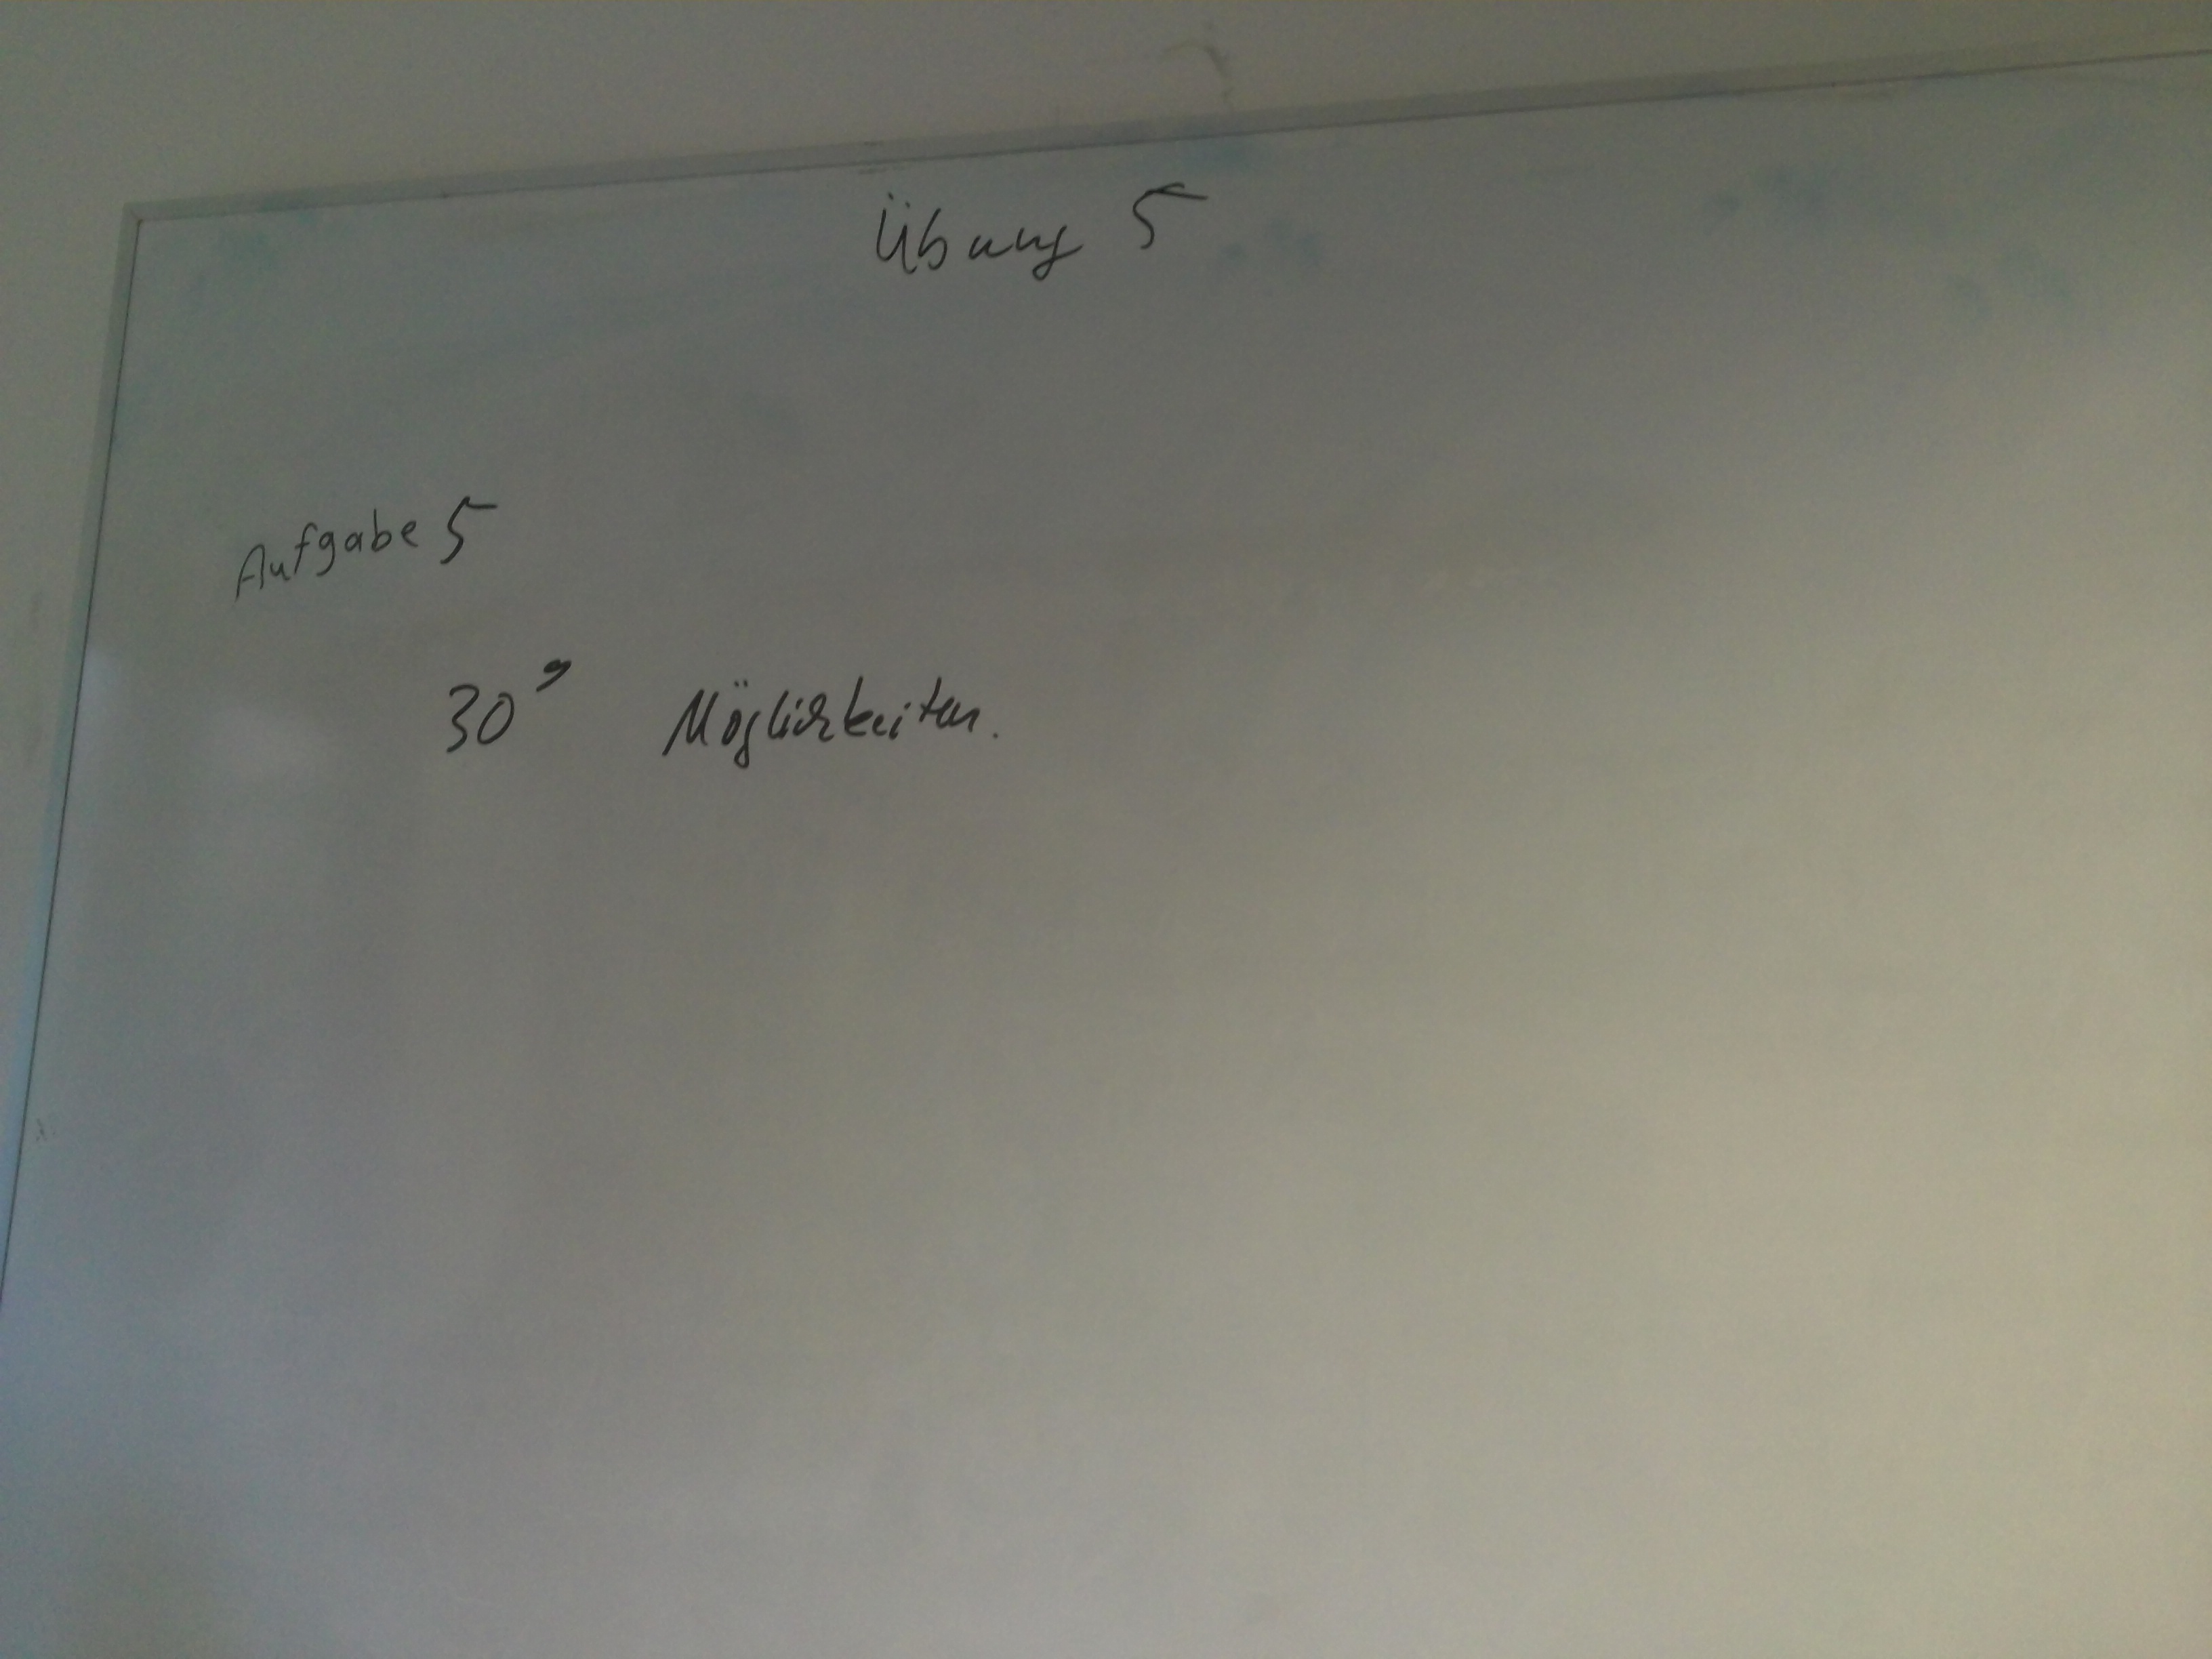 Übung 5
Aufgabe 5
30⁹ Möglichkeiten.